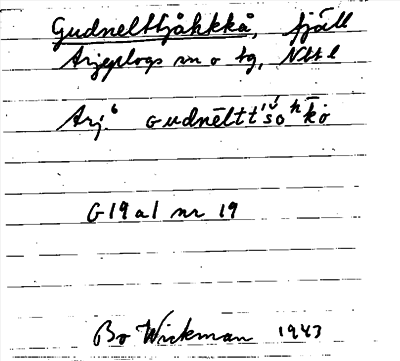 Gudnelttjåkkå, fjäll
Arjeplogs sn o tg, Nbt l
Arj. Gudnēltt
G 19 a 1 nr 19
Bo Wickman 1943